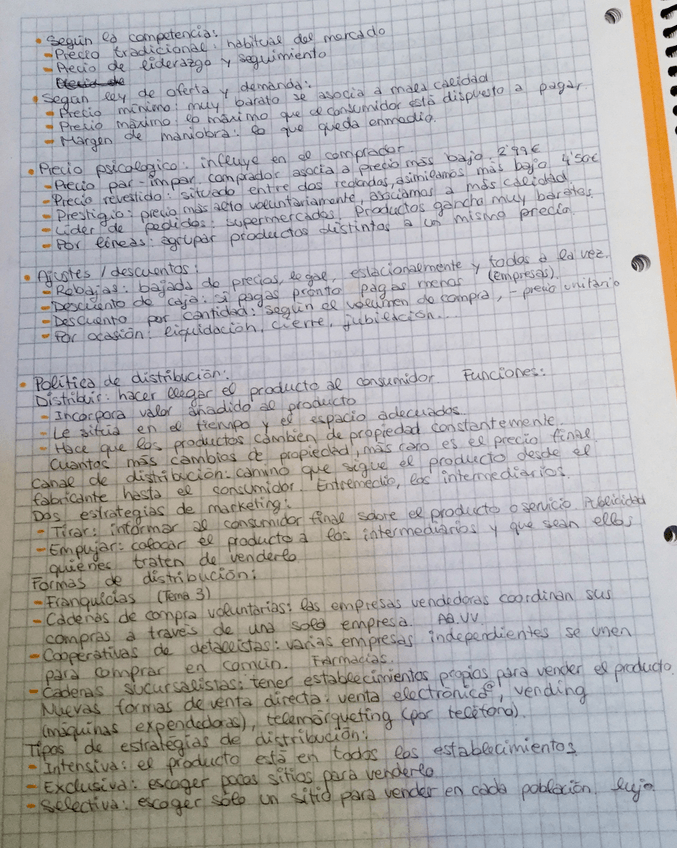 • Según la competencia:
- Precio tradicional: habitual del mercado
- Precio de liderazgo y seguimiento
• Según ley de oferta y demanda:
- Precio mínimo: muy barato se asocia a mala calidad
- Precio máximo: lo máximo que el consumidor está dispuesto a pagar
- Margen de maniobra: lo que queda enmedio.
• Precio psicologico: influye en el comprador
- Precio par-impar: comprador asocia a precio más bajo. 2'99€
- Precio revestido: situado entre dos redondas, asimilamos más bajo 4'50€
- Prestigio: precio más alto voluntariamente, asociamos a más calidad
- Líder de pedidos: supermercados. Productos gancho muy baratos.
- Por líneas: agrupar productos distintos a un mismo precio.
• Ajustes / descuentos:
- Rebajas: bajada de precios, legal, estacionalmente y todos a la vez.
- Descuento de caja: si pagas pronto pagas menos (empresas).
- Descuento por cantidad: según el volumen de compra, - precio unitario
- Por ocasión: liquidación, cierre, jubilación...
• Política de distribución:
Distribuir: hacer llegar el producto al consumidor Funciones:
- Incorpora valor añadido al producto
- Le sitúa en el tiempo y el espacio adecuados.
- Hace que los productos cambien de propiedad constantemente.
Cuantos más cambios de propiedad, más caro es el precio final.
Canal de distribución: camino que sigue el producto desde el
fabricante hasta el consumidor. Entremedio, los intermediarios.
Dos estrategias de marketing:
- Tirar: informar al consumidor final sobre el producto o servicio Publicidad
- Empujar: colocar el producto a los intermediarios y que sean ellos
quienes traten de venderlo
Formas de distribución:
- Franquicias (Tema 3)
- Cadenas de compra voluntarias: las empresas vendedoras coordinan sus
compras a través de una sola empresa. AA.VV.
- Cooperativas de detallistas: varias empresas independientes se unen
para comprar en común. Farmacias.
- Cadenas sucursalistas: tener establecimientos propios para vender el producto.
Nuevas formas de venta directa: venta electrónica, vending
(máquinas expendedoras), telemárqueting (por teléfono).
Tipos de estrategias de distribución:
- Intensiva: el producto está en todos los establecimientos
- Exclusiva: escoger pocos sitios para venderlo
- Selectiva: escoger sólo un sitio para vender en cada población. lujo